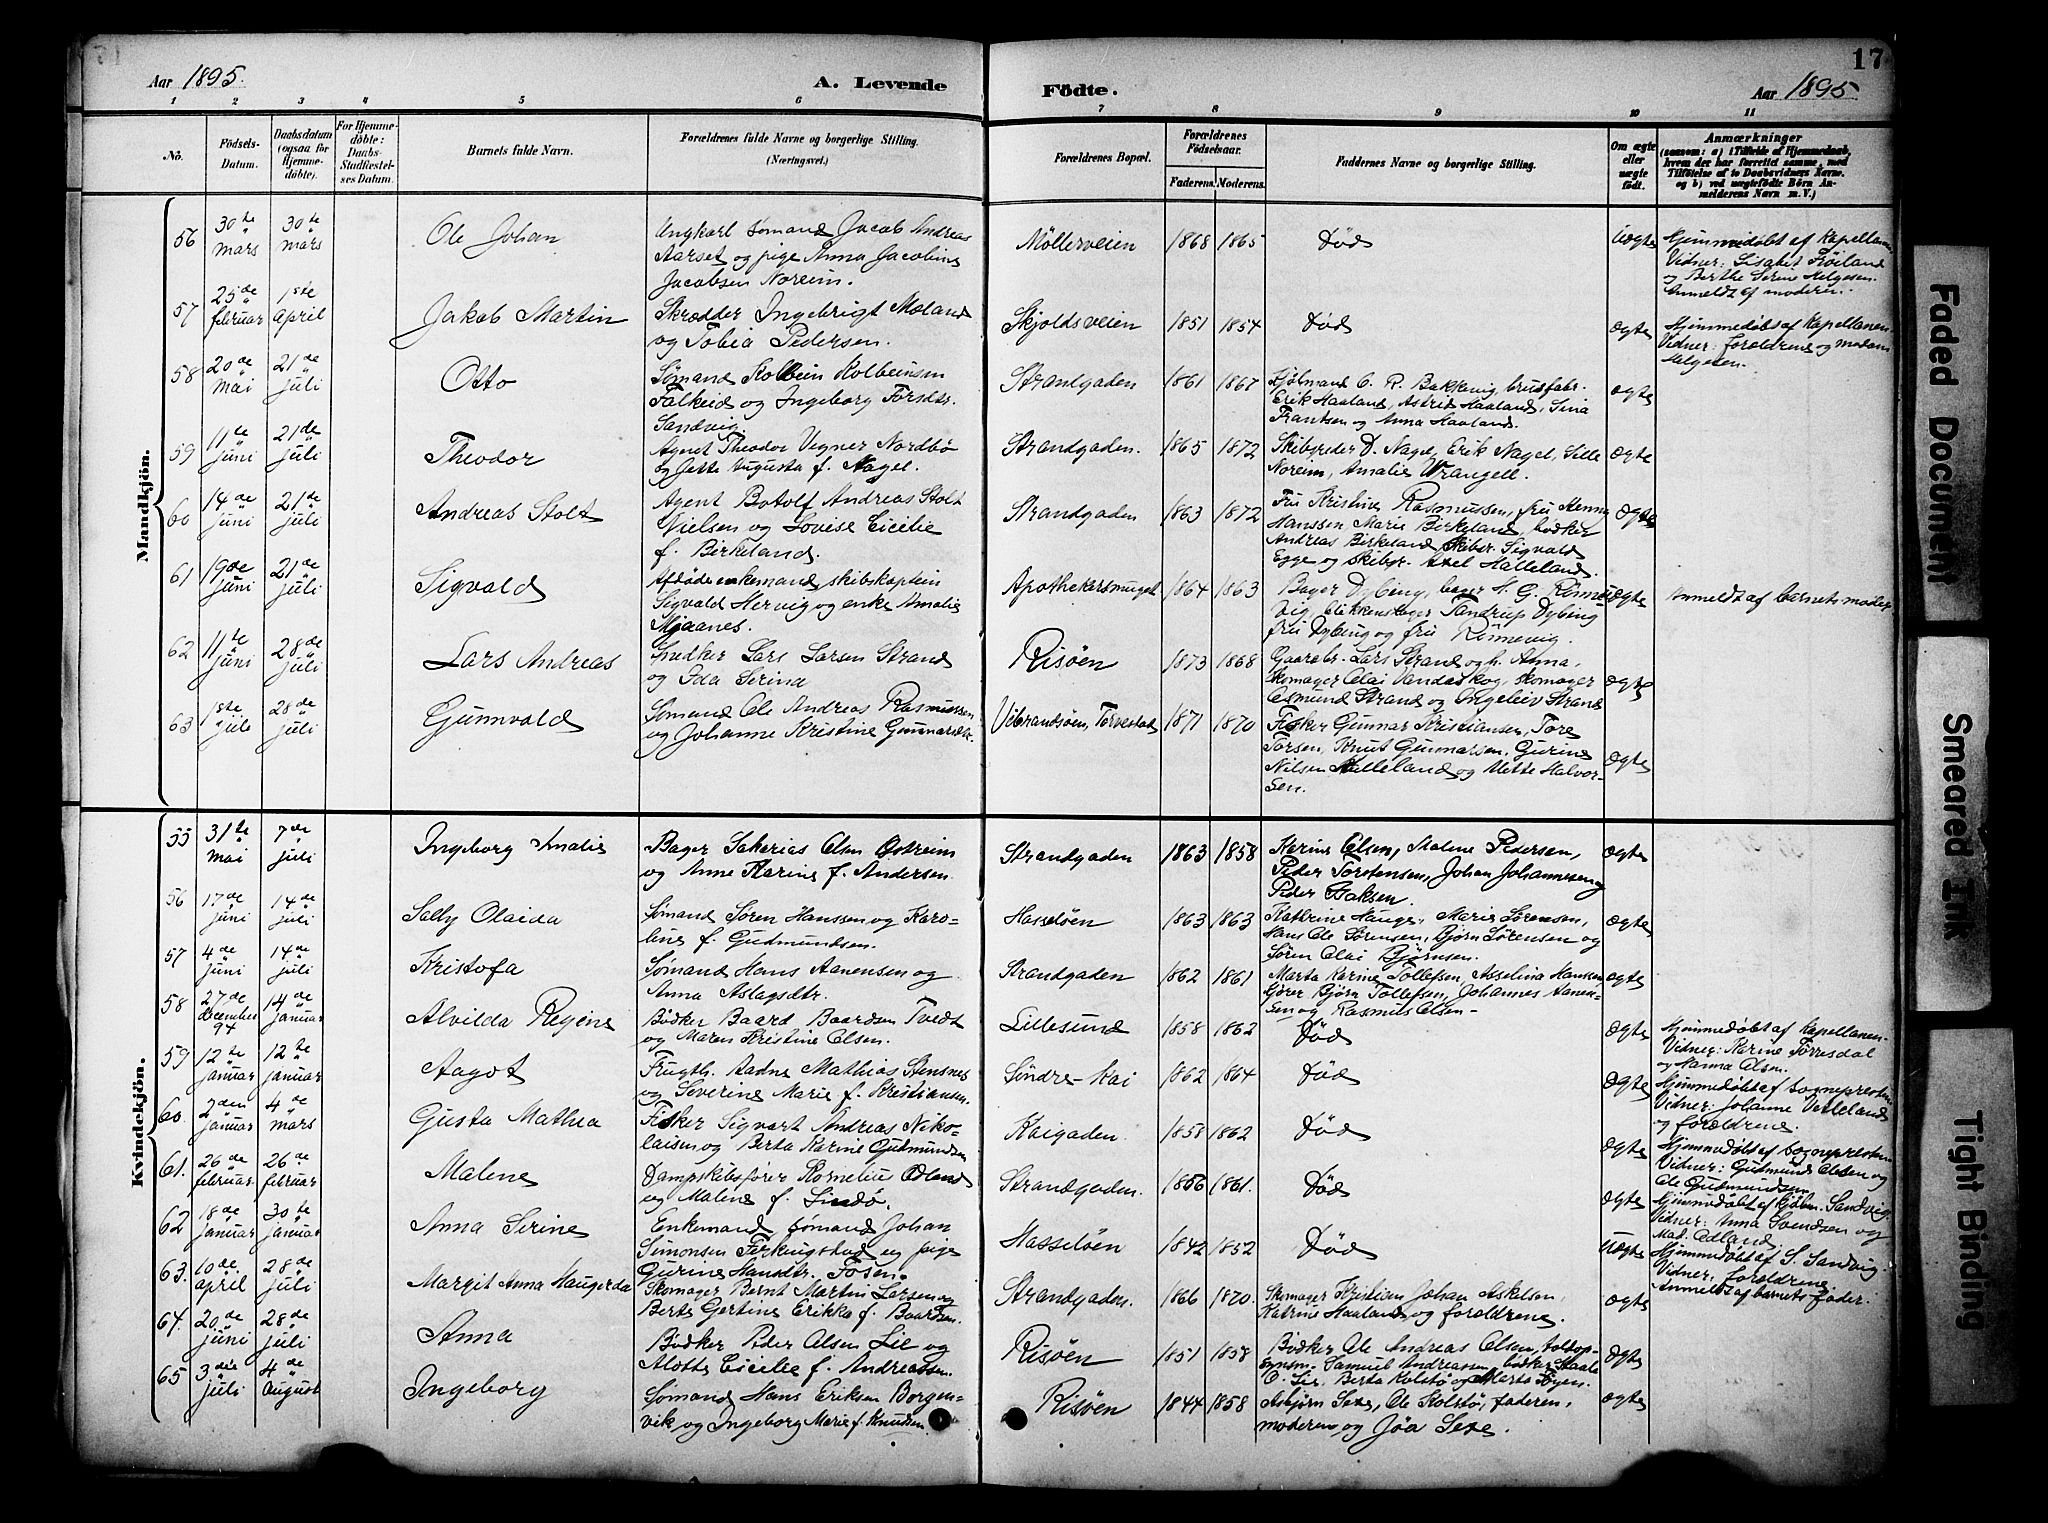 Aar 1895. A. Levende Födte. Aar 1895. 17
1 2 3 4 5 6 7 8 9 10 11
No. Födsels-Datum. Daabsdatum (ogsaa for Hjemmedöbte). For Hjemmedöbte: Daabs-Stadfæstelses Datum. Barnets fulde Navn. Forældrenes fulde Navne og borgerlige Stilling. (Næringsvei.) Forældrenes Bopæl. Forældrenes Födselsaar. Faderens. Moderens. Faddernes Navne og borgerlige Stilling. Om ægte eller uægte födt. Anmærkninger (saasom: a) i Tilfælde af Hjemmedaab, hvem der har forrettet samme, med Tilföielse af to Daabsvidners Navne, og b) ved uægtefödte Börn Anmelderens Navn m. V.)
Mandkjön.
56 30te mars 30te mars Ole Johan Ungkarl sømand Jacob Andreas Aarset og pige Anna Jacobine Jacobsen Noreim. Møllerveien 1868 1865 Død Uægte Hjemmedøbt af kapellanen. Vidner: Lisabet Frøiland og Berthe Serine Helgesen. Anmeldt af moderen.
57 25de februar 1ste april Jakob Martin Skrædder Ingebrigt Mæland og Tobia Pedersen. Skjoldsveien 1851 1854 Død Ægte Hjemmedøbt af kapellanen. Vidner: forældrene og madam Helgesen.
58 20de mai 21de juli Otto Sømand Kolbein Kolbeinsen Falkeid og Ingeborg Torsdtr. Sandvig. Strandgaden 1861 1867 C. R. Bakkevig, Erik Haaland, Astrid Haaland, Sina Frantsen og Anna Haaland. Ægte
59 11te juni 21de juli Theodor Agent Theodor Vegner Nordbø og Jette Augusta f. Nagel. Strandgaden. 1865 1872 Skibsreder D. Nagel, Erik Nagel, Lille Noreim, Amalie Wrangell. Ægte
60 14de juni 21de juli Andreas Stolt Agent Botolf Andreas Stolt Nielsen og Lovise Cicilie f. Birkeland. Strandgaden 1863 1872 Fru Kristine Rasmussen, fru Henny Hanssen Marie Birkeland, bødker Andreas Birkeland, skibsr. Sigvald Egge og skibsr. Axel Halleland. Ægte
61 19de juni 21de juli Sigvald Afdøde enkemand skibskaptein Sigvald Hervig og enke Amalie Mjaanes. Apothekersmuget 1864 1863 Bager Dybing, bager H. G. Rønnevig, blikkenslager Tandrup Dybing fru Dybing og fru Rönnevig. Ægte Anmeldt af barnets moder.
62 11te juni 28de juli Lars Andreas Snedker Lars Larsen Strand og Ida Serina Risøen 1873 1868 Gaardbr. Lars Strand og h. Anna, skomager Olai Vandaskog, skomager Osmund Strand og Ingeleiv Strand Ægte
63 1ste juli 28de juli Gunnvald Sømand Ole Andreas Rasmussen og Johanne Kristine Gunnarsdtr. Vibrandsøen, Torvestad 1871 1870 Fisker Gunnar Kristiansen, Tore Torsen, Knut Gunnarsen, Gurine Nilsen Helleland og Mette Halvorsen. Ægte
Kvindekjön.
55 31te mai 7de juli Ingeborg Amalie Bager Sakarias Olsen Østreim og Anne Karine f. Andersen. Strandgaden 1863 1858 Karine Olsen, Malene Pedersen, Peder Torstensen, Johan Johannesen og Peder Isaksen. Ægte
56 17de juni 14de juli Sally Olaida Sømand Søren Hanssen og Karoline f. Gudmundsen. Hasseløen 1863 1863 Kathrine Hauge, Marie Sørensen, Hans Ole Sørensen, Bjørn Sørensen og Søren Olai Bjørnsen. Ægte
57 4de juni 14de juli Kristofa Sømand Hans Aanensen og Anna Aslagsdtr. Strandgaden 1862 1861 Marta Karine Tollefsen, Asselina Hansen Kjører Bjørn Tollefsen, Johannes Aanensen og Rasmus Olsen- Ægte
58 27de december 94 14de januar Alvilda Regine Bødker Baard Baardsen Tvedt og Maren Kristine Olsen. Lillesund 1858 1862 Død Ægte Hjemmedøbt af kapellanen. Vidner: Karine Førresdal og Hanna Olsen.
59 12te januar 12te januar Aagot Frugth. Aadne Mathias Stensnes og Severine Marie f. Kristiansen. Søndre-Kai 1862 1864 Død Ægte Hjemmedøbt af sognepresten Vidner: Johanne Velleland og forældrene.
60. 2den januar 4de mars Gusta Mathea Fisker Sigvart Andreas Nikolaisen og Berta Karine Gudmundsen Kaigaden. 1858 1862 Død Ægte Hjemmedøbt af sognepresten Vidner: Gudmund Olsen og Ole Gudmundsen
61. 26de februar 26de februar Malene Dampskibsfører Kornelius Ødland og Malene f. Lindø. Strandgaden. 1856 1861. Død Ægte Hjemmedøbt af Sandvig. Vidner: Anna Svendsen og Mad. Ødland.
62 18de januar 30te januar Anna Serine Enkemand sømand Johan Simonsen Ferkingstad og pige Gurine Hansdtr. Fosen. Hasseløen 1842 1852 Død Uægte Hjemmedøbt af S. Sandvig. Vidner: forældrene. Anmeldt af barnets fader.
63. 10de april 28de juli Margit Anna Haugerda Skomager Bernt Martin Larsen og Berte Gertine Erikka f. Baardsen. Strandgaden. 1866 1870. Skomager Kristian Johan Askelsen, Katrine Haaland og forældrene. Ægte
64. 20de juni 28de juli Anna Bødker Peder Olsen Lie og Alette Cicilie f. Andreassen. Risøen 1851 1858 Bødker Ole Andreas Olsen, Samuel Andreassen, bødker O. Lie. Berta Kolstø og Marta Ægte
65 3die juli 4de August Ingeborg Sømand Hans Eriksen Borgenvik og Ingeborg Marie f. Knudsen. Risøen 1844 1858 Asbjørn Sexe, Ole Kolstø, faderen, moderen, og Jöa Sexe. Ægte
Faded Document
Smeared Ink
Tight Binding